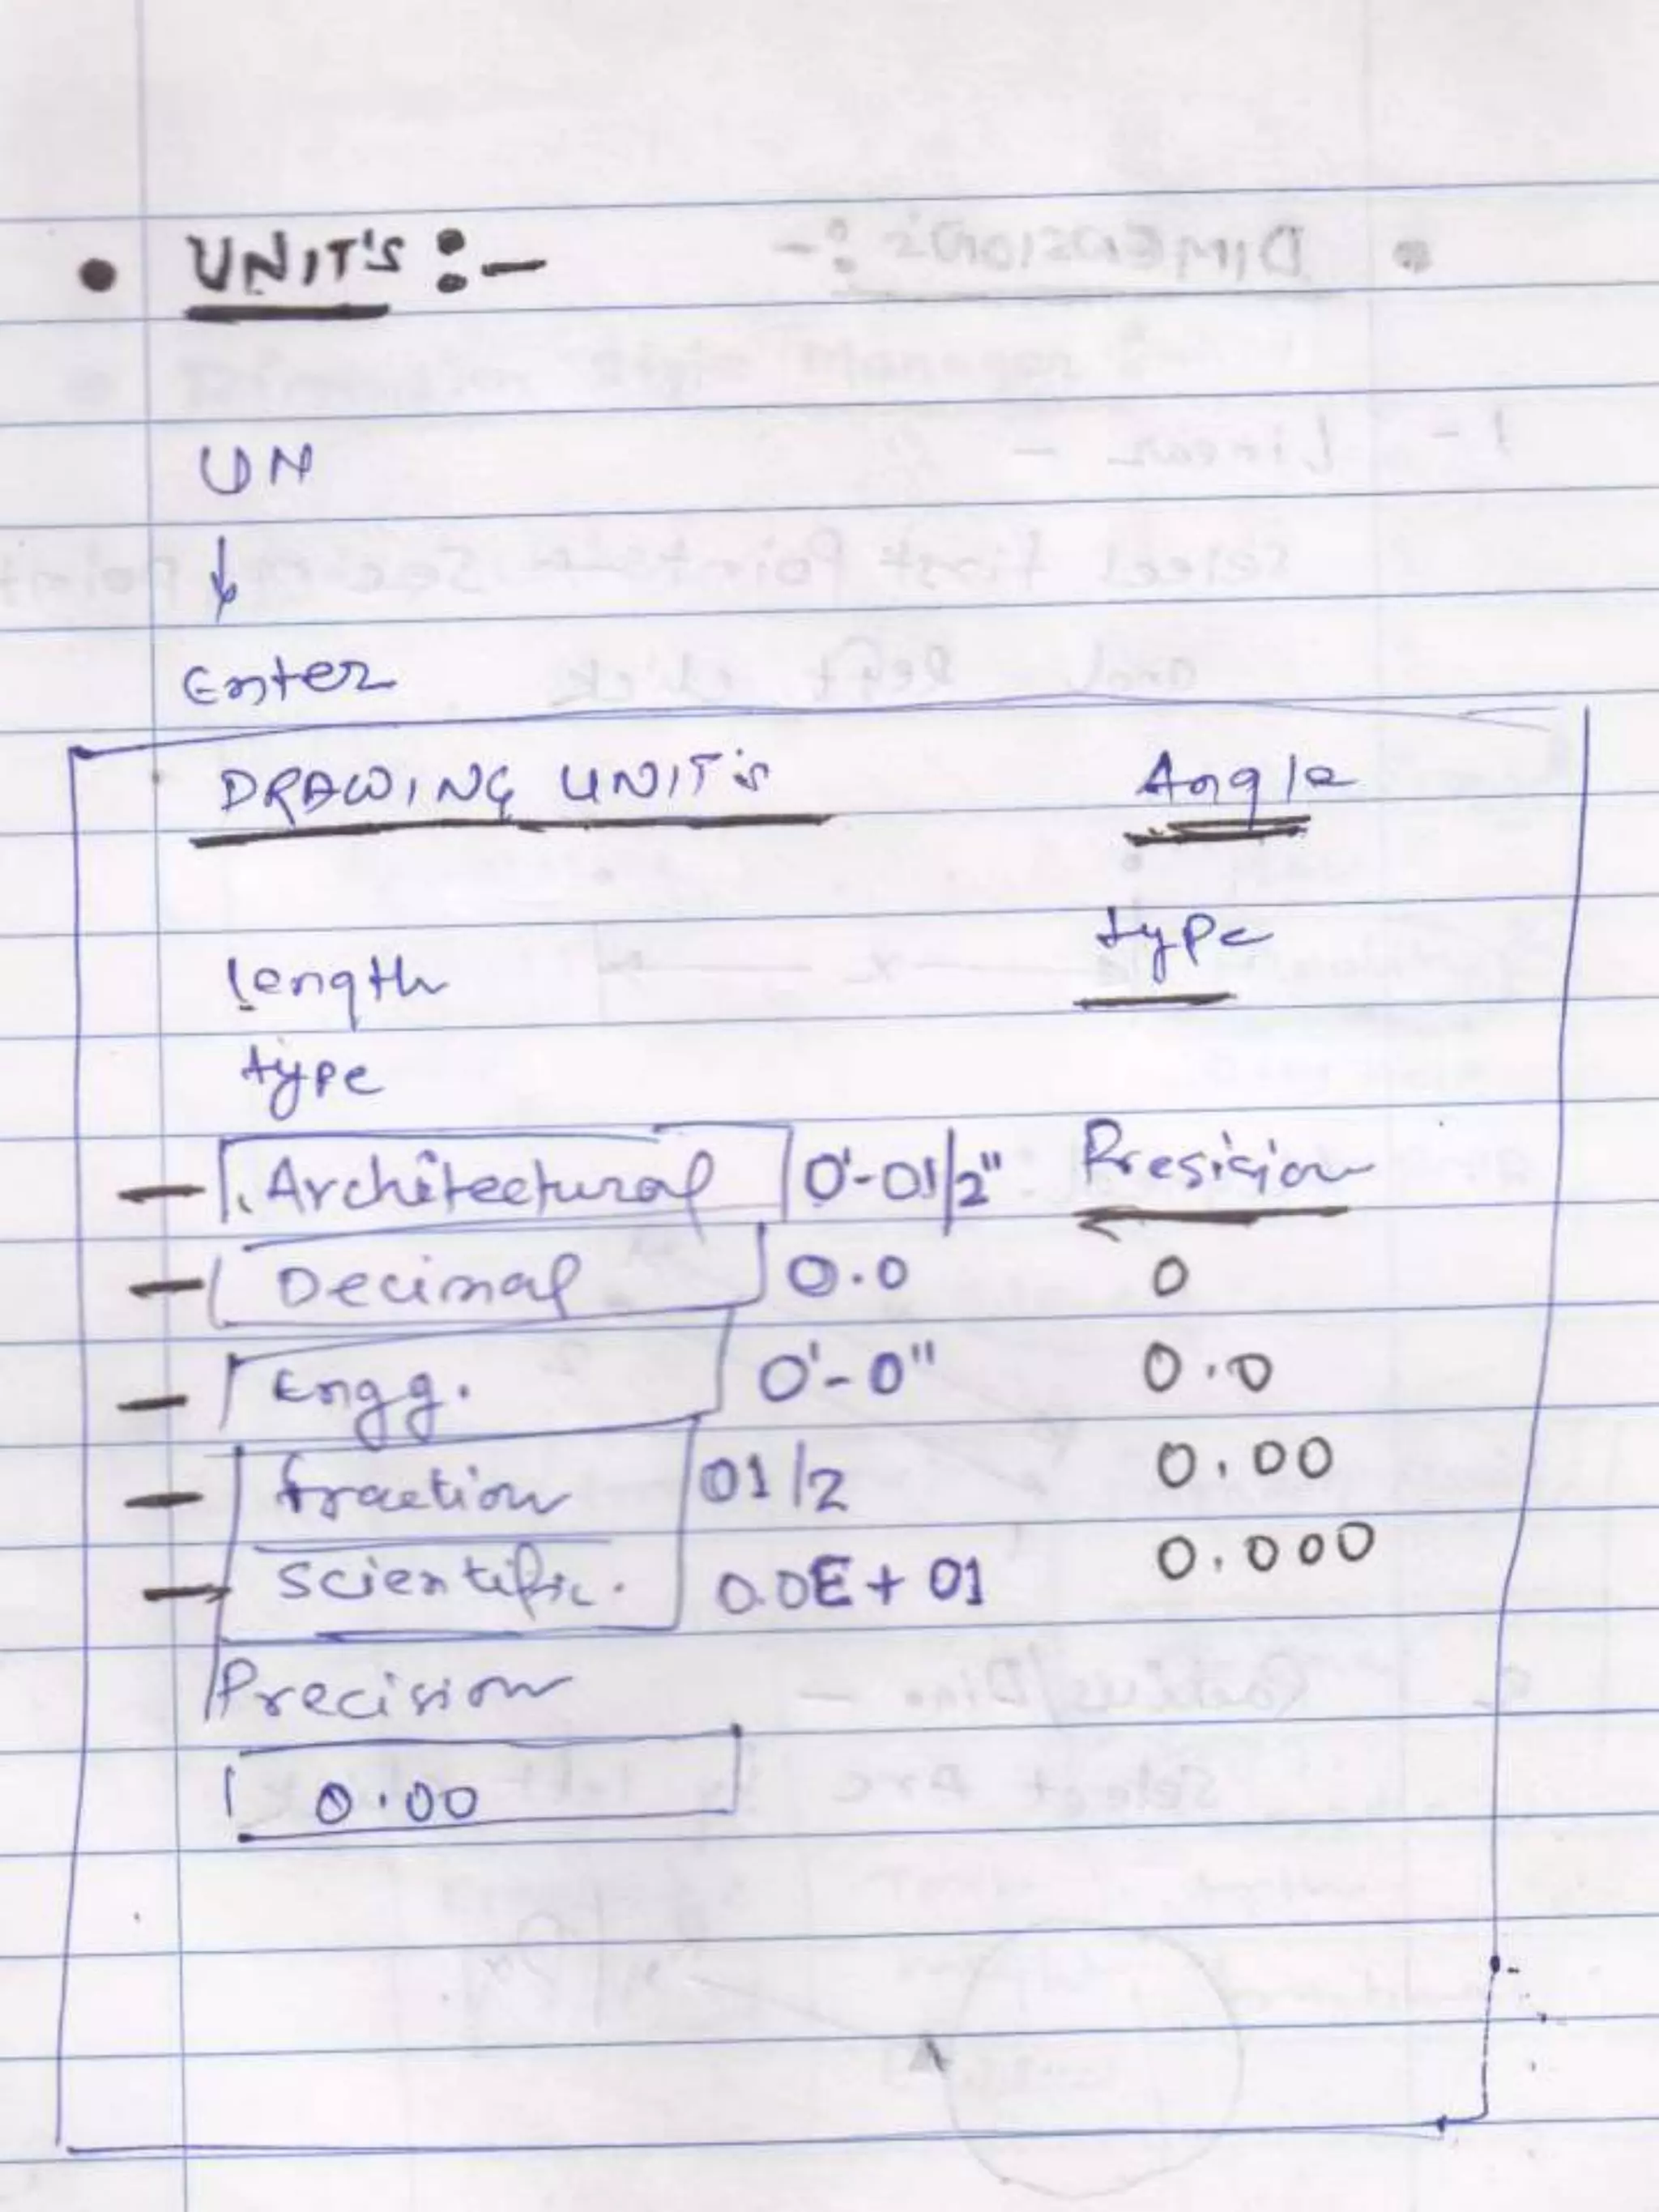 • UNIT's :-
UN
↓
Enter
DRAWING UNIT's Angle
length type
type
- Architectural 0'-01/2" Presision
- Decimal 0.0 0
- Engg. 0'-0" 0.0
- fraction 01/2 0.00
- Scientific. 0.0E+01 0.000
Precision
0.00